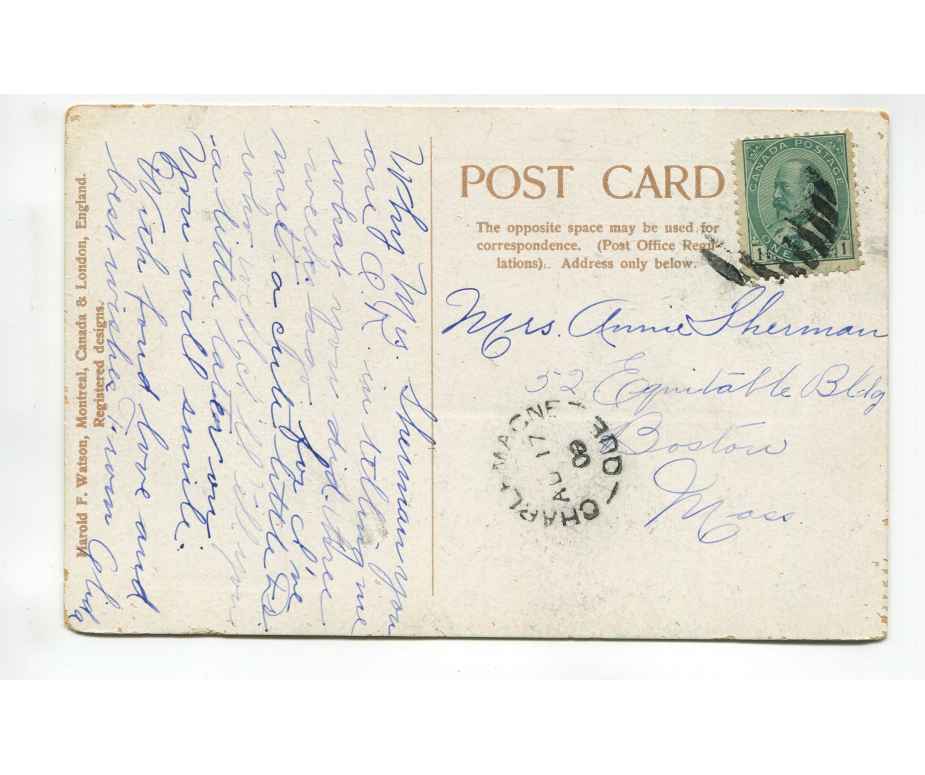 Why Mrs. Sherman you
are O.K. in telling me
what you did three
weeks ago for I've
met a cute little
who
a little later on.
You will smile.
With fond love and
best wishes from
Marold F. Watson, Montreal, Canada & London, England.
Registered designs.
POST CARD
The opposite space may be used for
correspondence. (Post Office Regu-
lations). Address only below.
CANADA POSTAGE
1 ONE 1
Mrs. Annie Sherman
52 Equitable Bldg
Boston
Mass.
CHARLEMAGNE
AU 17
08
QUE